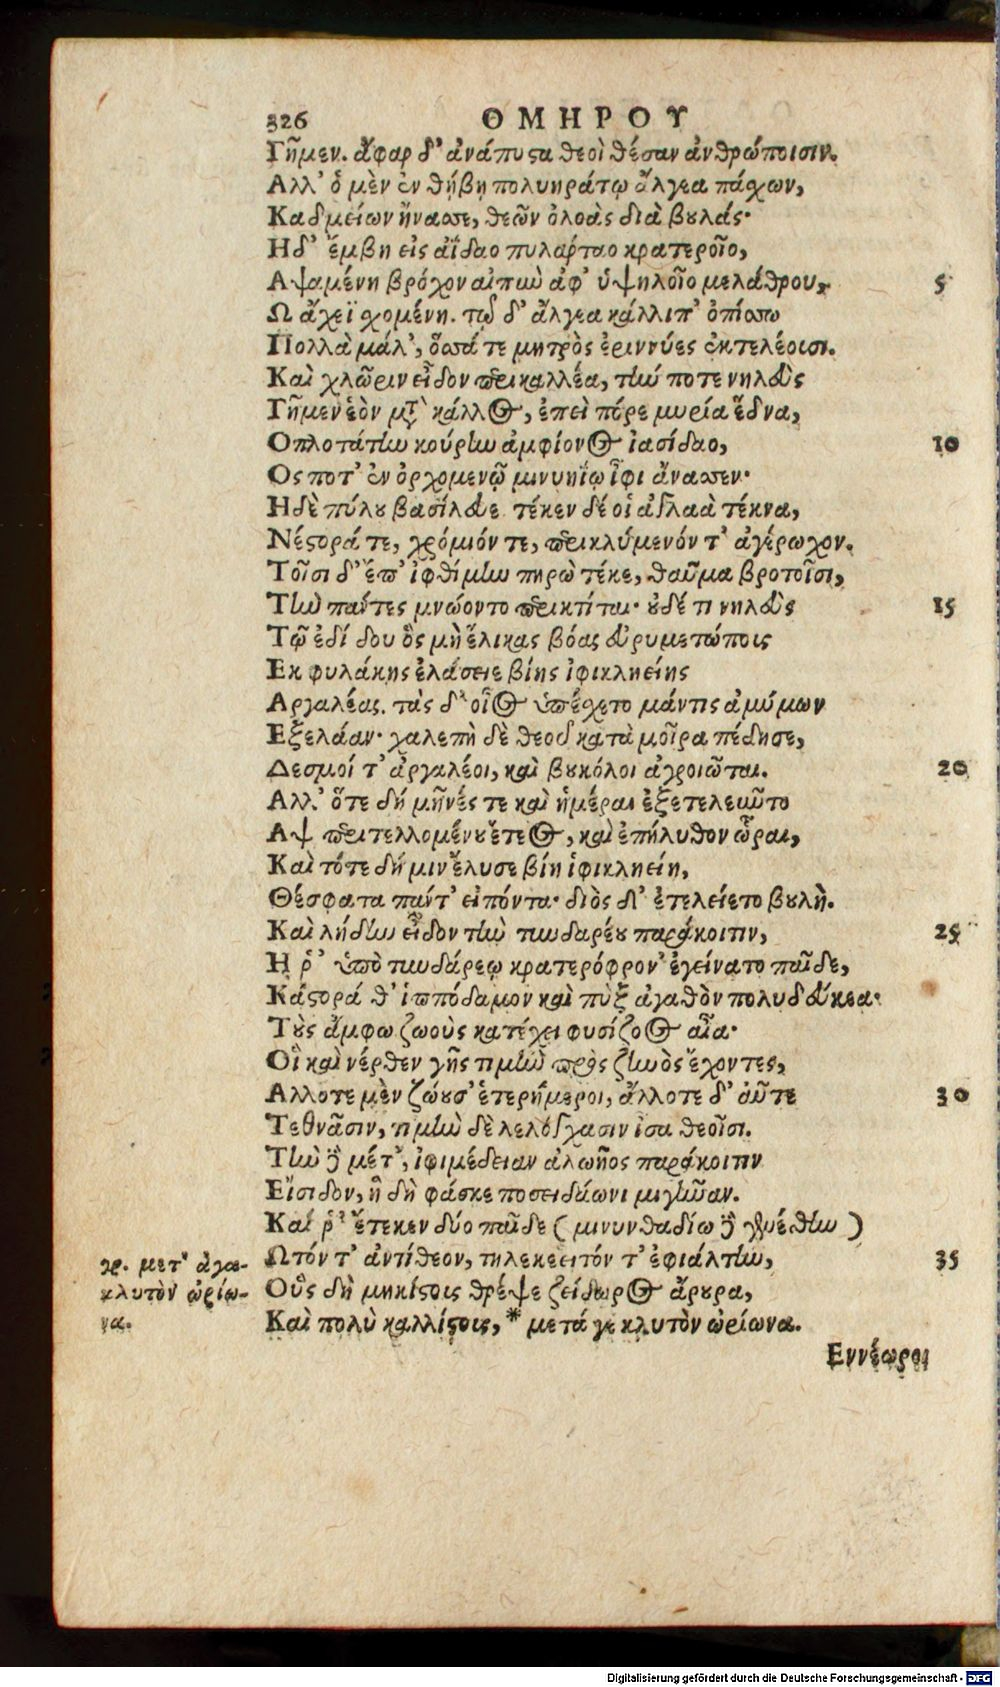 326 ΟΜΗΡΟΥ
Γῆμεν. ἄφαρ δ' ἀνάπυϛα θεοὶ θέσαν ἀνθρώποισιν.
Αλλ' ὁ μὲν ἐν θήβῃ πολυηράτῳ ἄλγεα πάχων,
Καδμείων ἤνασσε, θεῶν ὀλοὰς διὰ βȣλάς·
Ηδ' ἔμβη εἰς ἀΐδαο πυλάρταο κρατεροῖο,
Αψαμένη βρόχον αἰπὺν ἀφ' ὑψηλοῖο μελάθρου, 5
Ω ἄχεϊ χομένη. τῷ δ' ἄλγεα κάλλιπ' ὀπίσσω
Πολλὰ μάλ', ὅσσά τε μητρὸς ἐριννύες ἐκτελέοισι.
Καὶ χλῶριν εἶδον περικαλλέα, τίω ποτε νηλεὺς
Γῆμεν ἑὸν μετὰ κάλλος, ἐπεὶ πόρε μυρία ἕδνα,
Οπλοτάτην κούρην ἀμφίονος ἰασίδαο, 10
Ος ποτ' ἐν ὀρχομενῷ μινυηΐῳ ἶφι ἄνασσεν·
Ηδὲ πύλȣ βασίλευε τέκεν δέ οἱ ἀγλαὰ τέκνα,
Νέϛορά τε, χρόμιόν τε, περικλύμενόν τ' ἀγέρωχον.
Τοῖσι δ' ἔπ' ἰφθίμην πηρὼ τέκε, θαῦμα βροτοῖσι,
Τὴν πάντες μνώοντο περικτίται· ȣδέ τι νηλεὺς 15
Τῷ ἐδίδου ὃς μὴ ἕλικας βόας εὐρυμετώποις
Εκ φυλάκης ἐλάσειε βίης ἰφικληείης
Αργαλέας. τὰς δ' οἶος ὑπέχετο μάντις ἀμύμων
Εξελάαν· χαλεπὴ δὲ θεοῦ κατὰ μοῖρα πέδησε,
Δεσμοί τ' ἀργαλέοι, καὶ βȣκόλοι ἀγροιῶται. 20
Αλλ' ὅτε δή μῆνές τε καὶ ἡμέραι ἐξετελεῦντο
Αψ περιτελλομένȣ ἔτεος, καὶ ἐπήλυθον ὧραι,
Καὶ τότε δή μιν ἔλυσε βίη ἰφικληείη,
Θέσφατα πάντ' εἰπόντα· διὸς δ' ἐτελείετο βȣλὴ.
Καὶ λήδην εἶδον τὴν τυνδαρέȣ παράκοιτιν, 25
Η ῥ' ὑπὸ τυνδάρεῳ κρατερόφρον' ἐγείνατο παῖδε,
Κάϛορά θ' ἱππόδαμον καὶ πὺξ ἀγαθὸν πολυδεύκεα·
Τȣ̀ς ἄμφω ζωοὺς κατέχει φυσίζοος αἶα·
Οἳ καὶ νέρθεν γῆς τιμὴν πρὸς ζηνὸς ἔχοντες,
Αλλοτε μὲν ζώȣσ' ἑτερήμεροι, ἄλλοτε δ' αὖτε 30
Τεθνᾶσιν, τιμὴν δὲ λελόγχασιν ἶσα θεοῖσι.
Τὴν δὲ μέτ', ἰφιμέδειαν ἀλωῆος παράκοιτιν
Εἴσιδον, ἣ δὴ φάσκε ποσειδάωνι μιγῆναι.
Καί ῥ' ἔτεκεν δύο παῖδε (μινυνθαδίω δὲ γενέσθην)
Ωτόν τ' ἀντίθεον, τηλεκλειτόν τ' ἐφιάλτην, 35
Οὓς δὴ μηκίϛοις θρέψε ζείδωρος ἄρȣρα,
Καὶ πολὺ καλλίϛοις, * μετά γε κλυτὸν ὠρίωνα.
γρ. μετ' ἀγα-
κλυτὸν ὠρίω-
να.
Εννέωροι
Digitalisierung gefördert durch die Deutsche Forschungsgemeinschaft - DFG